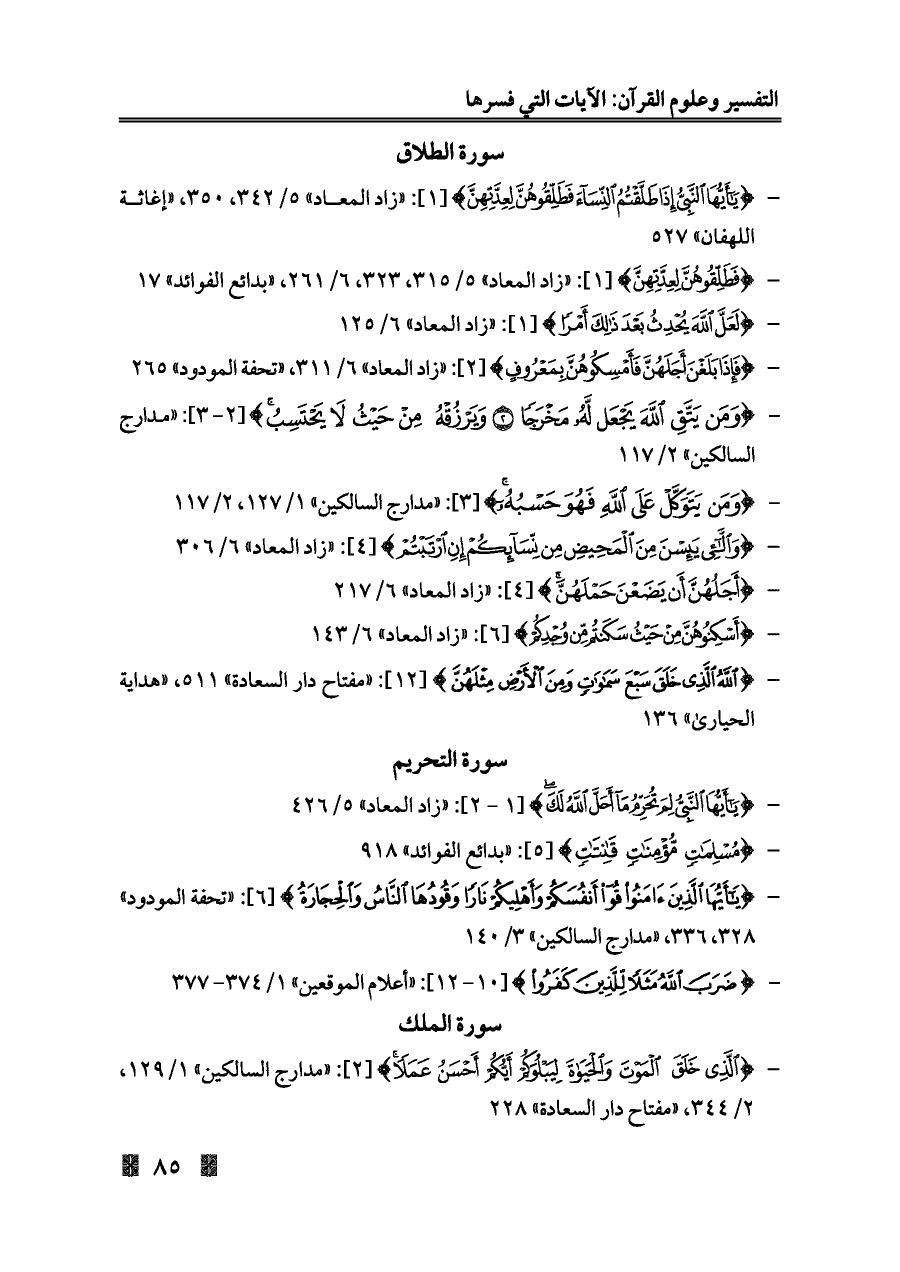 التفسير وعلوم القرآن: الآيات التي فسرها
سورة الطلاق
- ﴿يَٰٓأَيُّهَا ٱلنَّبِيُّ إِذَا طَلَّقۡتُمُ ٱلنِّسَآءَ فَطَلِّقُوهُنَّ لِعِدَّتِهِنَّ﴾ [١]: «زاد المعـــاد» ٥/ ٣٤٢، ٣٥٠، «إغاثــة
اللهفان» ٥٢٧
- ﴿فَطَلِّقُوهُنَّ لِعِدَّتِهِنَّ﴾ [١]: «زاد المعاد» ٥/ ٣١٥، ٣٢٣، ٦/ ٢٦١، «بدائع الفوائد» ١٧
- ﴿لَعَلَّ ٱللَّهَ يُحۡدِثُ بَعۡدَ ذَٰلِكَ أَمۡرٗا﴾ [١]: «زاد المعاد» ٦/ ١٢٥
- ﴿فَإِذَا بَلَغۡنَ أَجَلَهُنَّ فَأَمۡسِكُوهُنَّ بِمَعۡرُوفٍ﴾ [٢]: «زاد المعاد» ٦/ ٣١١، «تحفة المودود» ٢٦٥
- ﴿وَمَن يَتَّقِ ٱللَّهَ يَجۡعَل لَّهُۥ مَخۡرَجٗا ۝٢ وَيَرۡزُقۡهُ مِنۡ حَيۡثُ لَا يَحۡتَسِبُۚ﴾ [٢-٣]: «مـدارج
السالكين» ٢/ ١١٧
- ﴿وَمَن يَتَوَكَّلۡ عَلَى ٱللَّهِ فَهُوَ حَسۡبُهُۥٓۚ﴾ [٣]: «مدارج السالكين» ١/ ١٢٧، ٢/ ١١٧
- ﴿وَٱلَّٰٓـِٔي يَئِسۡنَ مِنَ ٱلۡمَحِيضِ مِن نِّسَآئِكُمۡ إِنِ ٱرۡتَبۡتُمۡ﴾ [٤]: «زاد المعاد» ٦/ ٣٠٦
- ﴿أَجَلُهُنَّ أَن يَضَعۡنَ حَمۡلَهُنَّۚ﴾ [٤]: «زاد المعاد» ٦/ ٢١٧
- ﴿أَسۡكِنُوهُنَّ مِنۡ حَيۡثُ سَكَنتُم مِّن وُجۡدِكُمۡ﴾ [٦]: «زاد المعاد» ٦/ ١٤٣
- ﴿ٱللَّهُ ٱلَّذِي خَلَقَ سَبۡعَ سَمَٰوَٰتٖ وَمِنَ ٱلۡأَرۡضِ مِثۡلَهُنَّ﴾ [١٢]: «مفتاح دار السعادة» ٥١١، «هداية
الحيارىٰ» ١٣٦
سورة التحريم
- ﴿يَٰٓأَيُّهَا ٱلنَّبِيُّ لِمَ تُحَرِّمُ مَآ أَحَلَّ ٱللَّهُ لَكَۖ﴾ [١ - ٢]: «زاد المعاد» ٥/ ٤٢٦
- ﴿مُسۡلِمَٰتٖ مُّؤۡمِنَٰتٖ قَٰنِتَٰتٖ﴾ [٥]: «بدائع الفوائد» ٩١٨
- ﴿يَٰٓأَيُّهَا ٱلَّذِينَ ءَامَنُواْ قُوٓاْ أَنفُسَكُمۡ وَأَهۡلِيكُمۡ نَارٗا وَقُودُهَا ٱلنَّاسُ وَٱلۡحِجَارَةُ﴾ [٦]: «تحفة المودود»
٣٢٨، ٣٣٦، «مدارج السالكين» ٣/ ١٤٠
- ﴿ضَرَبَ ٱللَّهُ مَثَلٗا لِّلَّذِينَ كَفَرُواْ﴾ [١٠-١٢]: «أعلام الموقعين» ١/ ٣٧٤-٣٧٧
سورة الملك
- ﴿ٱلَّذِي خَلَقَ ٱلۡمَوۡتَ وَٱلۡحَيَوٰةَ لِيَبۡلُوَكُمۡ أَيُّكُمۡ أَحۡسَنُ عَمَلٗاۚ﴾ [٢]: «مدارج السالكين» ١/ ١٢٩،
٢/ ٣٤٤، «مفتاح دار السعادة» ٢٢٨
٨٥